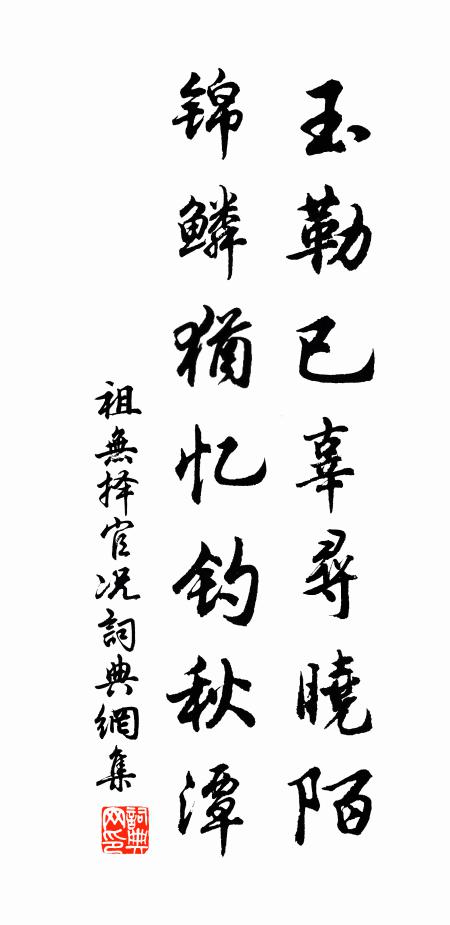 玉勒已辜尋曉陌
锦鳞猶忆钓秋潭
祖無择官况詞典網集
詞典网印